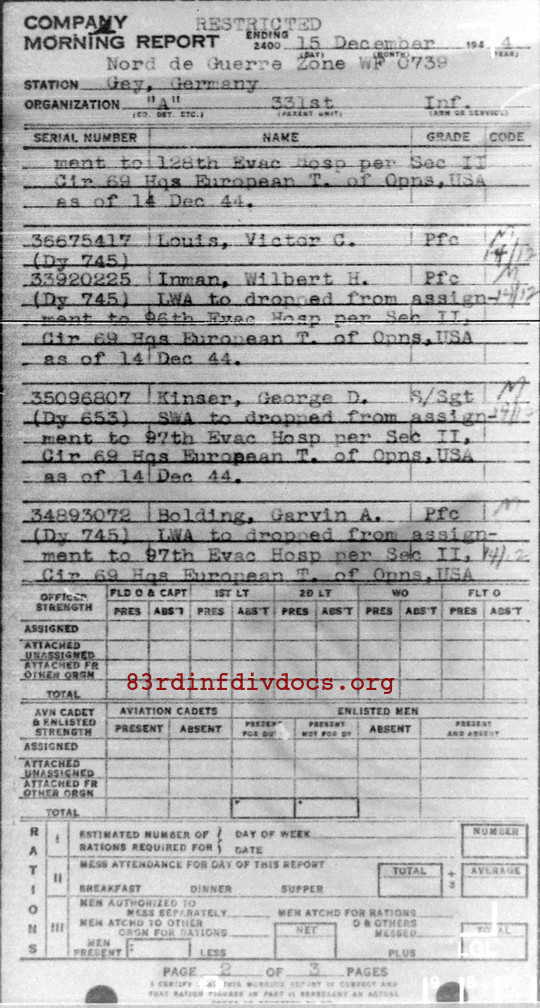 COMPANY RESTRICTED
MORNING REPORT ENDING 2400 15 December 194 4
(DAY) (MONTH) (YEAR)
Nord de Guerre Zone WF 0739
STATION Gey, Germany
ORGANIZATION "A" 331st Inf.
(CO. DET. ETC.) (PARENT UNIT) (ARM OR SERVICE)
SERIAL NUMBER NAME GRADE CODE
ment to 128th Evac Hosp per Sec II
Cir 69 Hqs European T. of Opns,USA
as of 14 Dec 44.
36675417 Louis, Victor C. Pfc M
(Dy 745) 14/12
33920225 Inman, Wilbert H. Pfc M
(Dy 745) LWA to dropped from assign- 14/12
ment to 96th Evac Hosp per Sec II,
Cir 69 Hqs European T. of Opns,USA
as of 14 Dec 44.
35096807 Kinser, George D. S/Sgt M
(Dy 653) SWA to dropped from assign-
ment to 97th Evac Hosp per Sec II,
Cir 69 Hqs European T. of Opns,USA
as of 14 Dec 44.
34893072 Bolding, Garvin A. Pfc M
(Dy 745) LWA to dropped from assign-
ment to 97th Evac Hosp per Sec II,
Cir 69 Hqs European T. of Opns,USA
OFFICER STRENGTH FLD O & CAPT 1ST LT 2D LT WO FLT O
PRES ABS'T PRES ABS'T PRES ABS'T PRES ABS'T PRES ABS'T
ASSIGNED
ATTACHED UNASSIGNED
ATTACHED FR OTHER ORGN
TOTAL
83rdinfdivdocs.org
AVN CADET & ENLISTED STRENGTH AVIATION CADETS ENLISTED MEN
PRESENT ABSENT PRESENT FOR DUTY PRESENT NOT FOR DY ABSENT PRESENT AND ABSENT
ASSIGNED
ATTACHED UNASSIGNED
ATTACHED FR OTHER ORGN
TOTAL
RATIONS
I ESTIMATED NUMBER OF RATIONS REQUIRED FOR { DAY OF WEEK NUMBER
DATE
II MESS ATTENDANCE FOR DAY OF THIS REPORT TOTAL ÷ 3 AVERAGE
BREAKFAST DINNER SUPPER
III MEN AUTHORIZED TO MESS SEPARATELY MEN ATCHD FOR RATIONS
MEN ATCHD TO OTHER ORGN FOR RATIONS NET O & OTHERS MESSED TOTAL
MEN PRESENT LESS PLUS
PAGE 2 OF 3 PAGES
I CERTIFY THIS MORNING REPORT IS CORRECT AND
THAT RATION FIGURES IN PART II REPRESENT AN ACTUAL